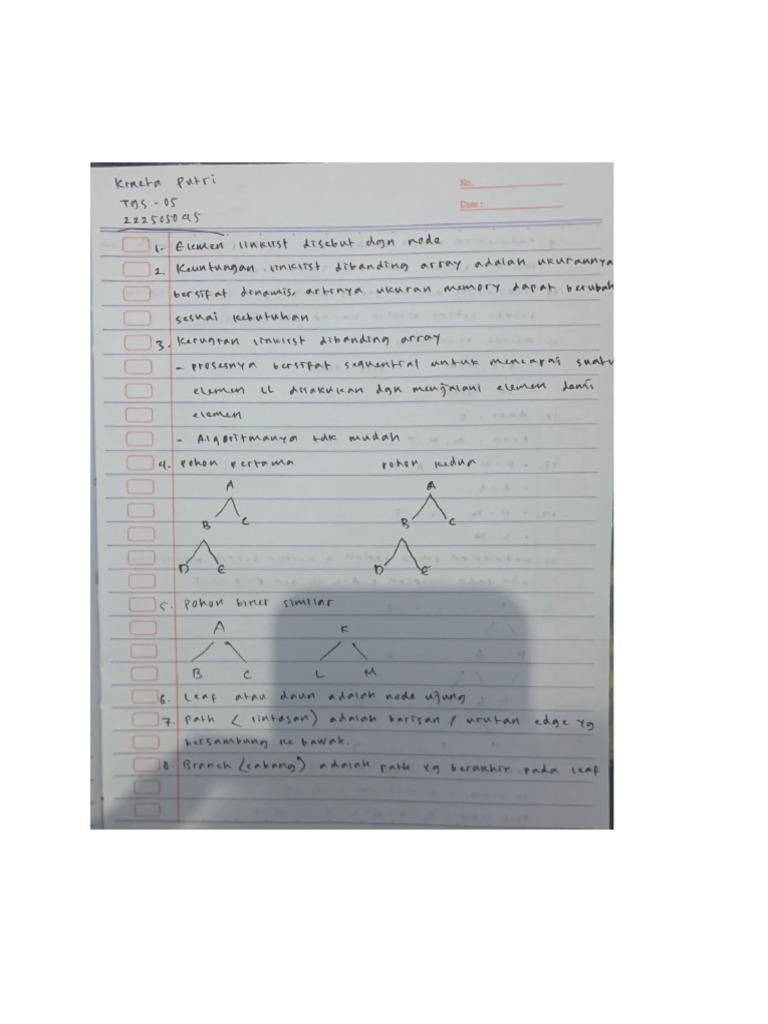 Putri
No.
Tgs - 05
Date :
1. Elemen linklist disebut dgn node
2. Keuntungan linklist dibanding array adalah ukurannya
bersifat dinamis, artinya ukuran memory dapat berubah
sesuai kebutuhan
3. Kerugian linklist dibanding array
- prosesnya bersifat sequential untuk mencapai suatu
elemen LL dilakukan dgn menjalani elemen demi
elemen
- Algoritmanya tdk mudah
4. pohon pertama pohon kedua
A A
B C B C
D E D E
5. pohon biner similar
A K
B C L M
6. Leaf atau daun adalah node ujung
7. Path (lintasan) adalah barisan / urutan edge yg
bersambung ke bawah.
8. Branch (cabang) adalah path yg berakhir pada leaf